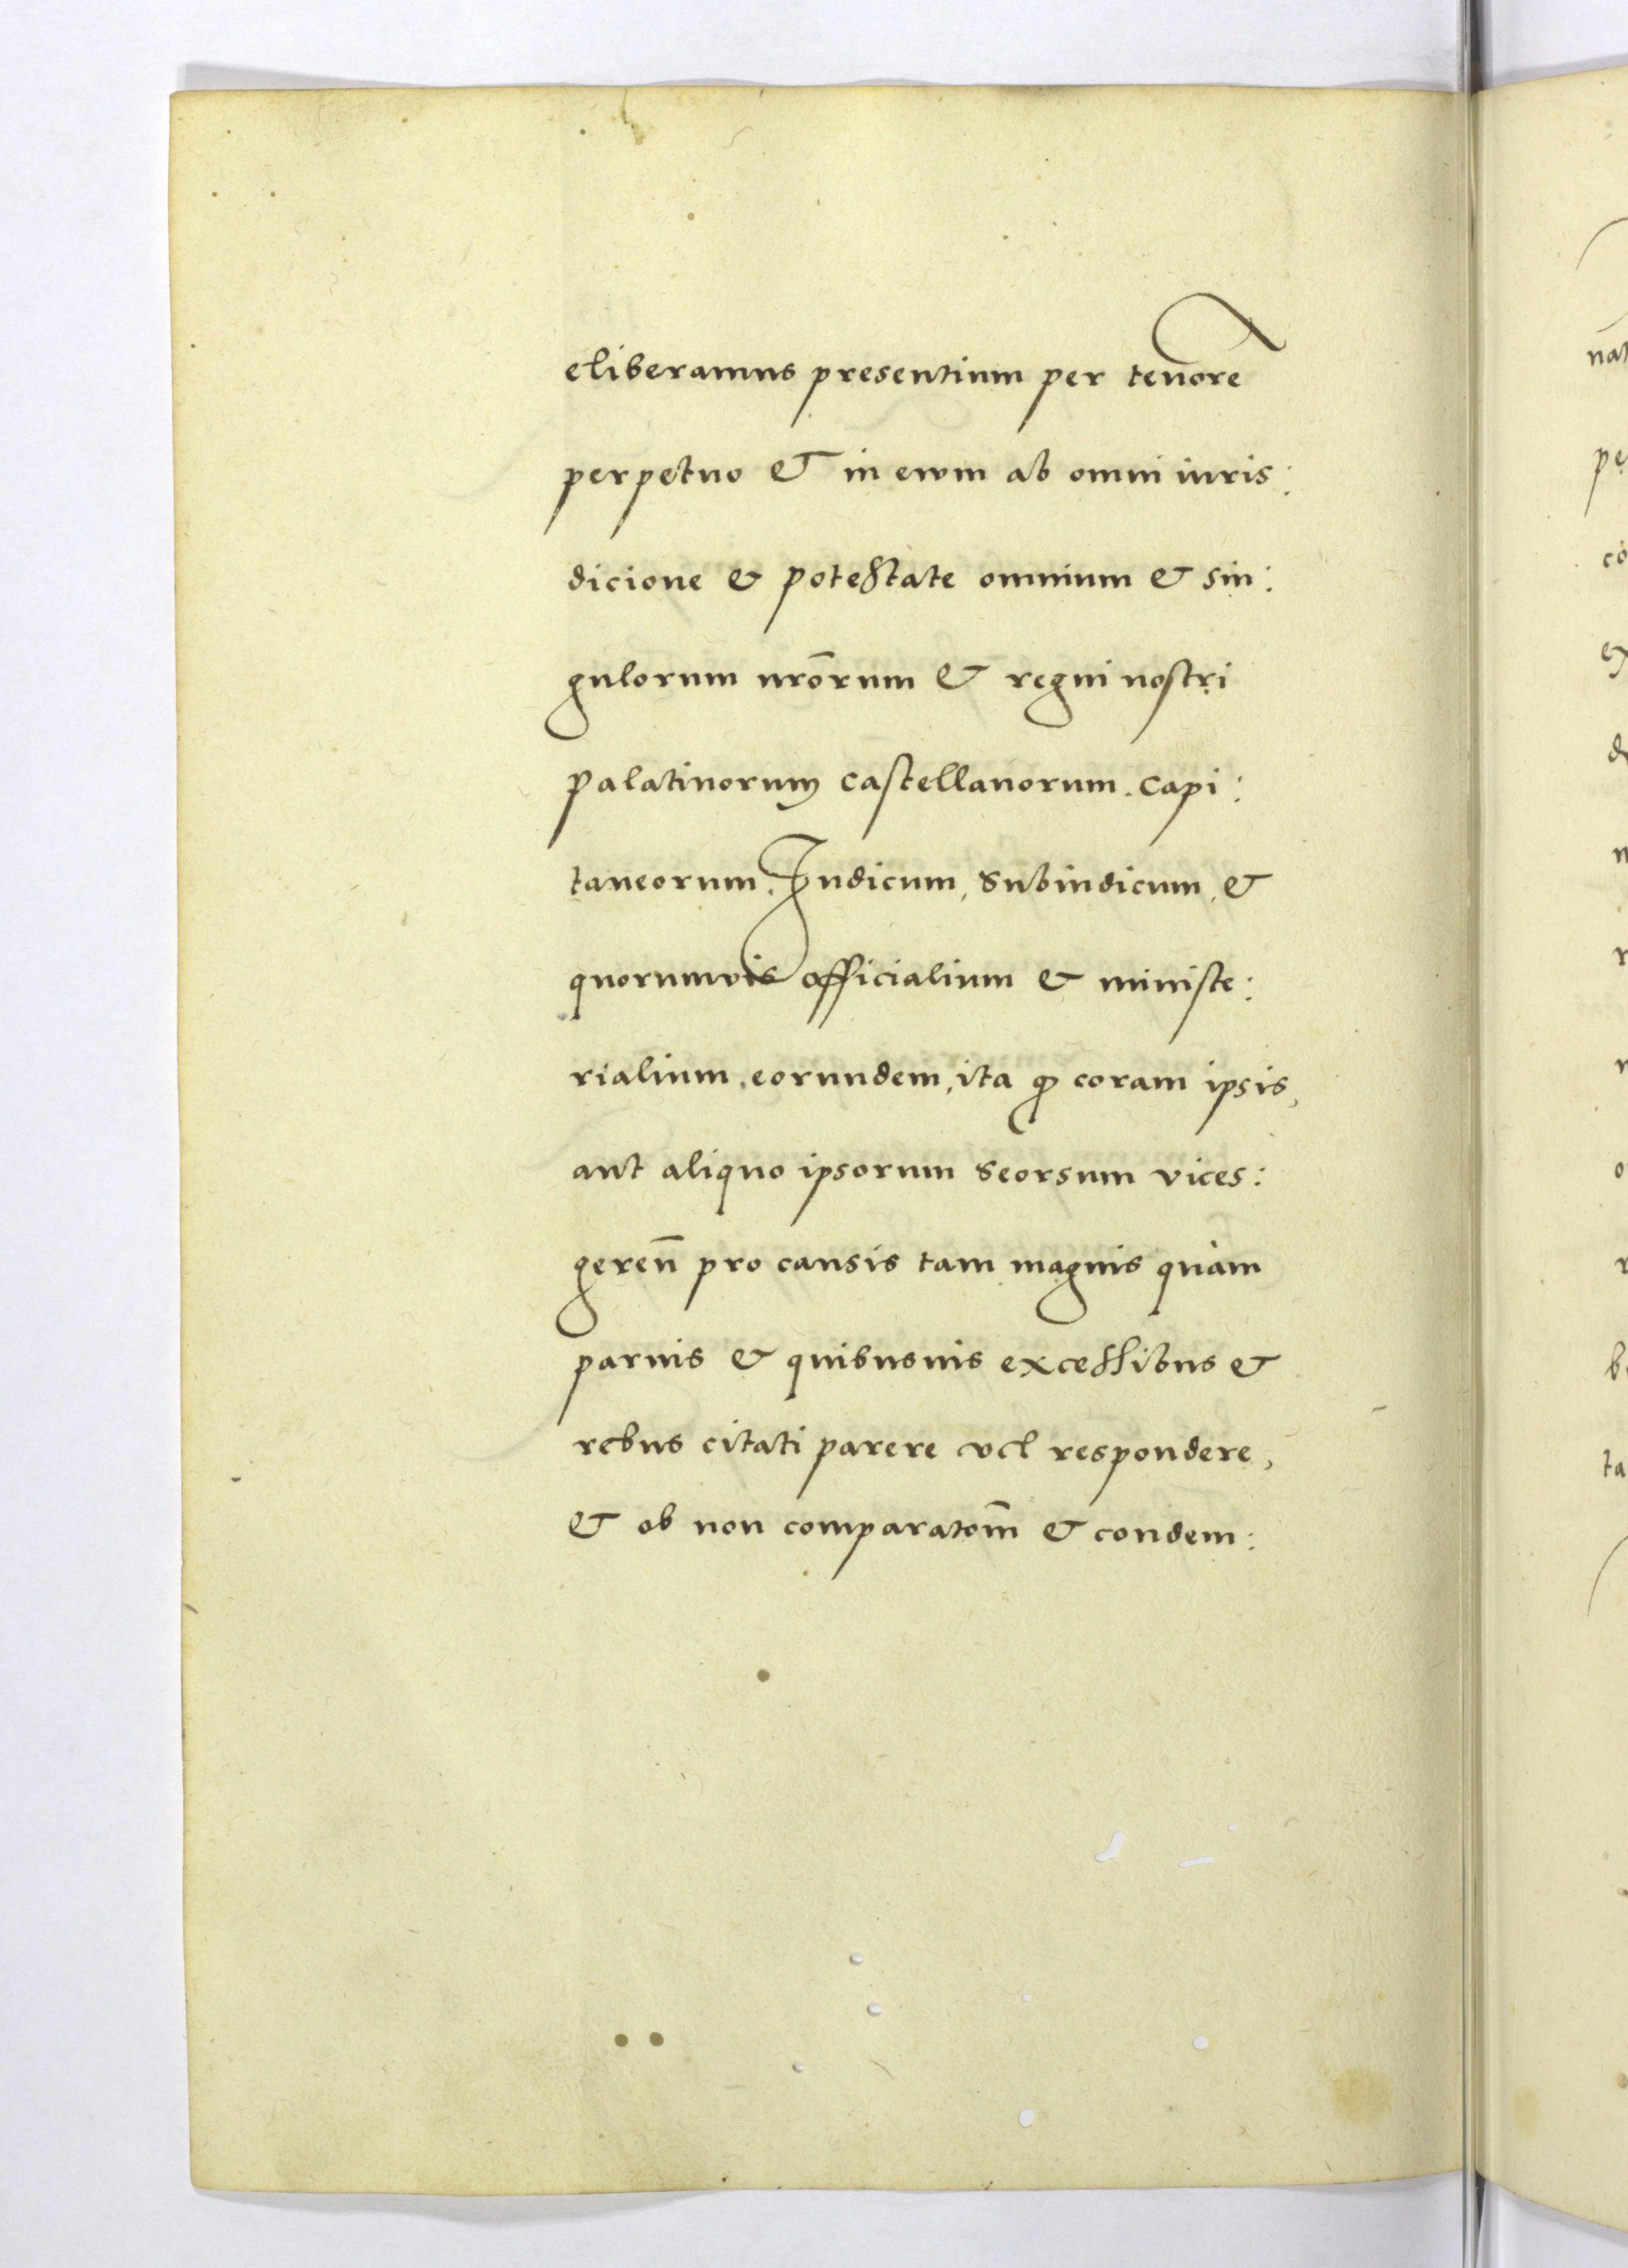 eliberamus presentium per tenore
perpetuo & in ewm ab omni iuris:
dicione & potestate omnium & sin:
gulorum nr̄orum & regni nostri
palatinorum castellanorum. Capi:
taneorum. Iudicum, Subiudicum, &
quorumvis officialium & ministe:
rialium, eorundem, ita ꝙ coram ipsis,
aut aliquo ipsorum seorsum vices:
gereñ pro causis tam magnis quàm
paruis & quibusuis excessibus &
rebus citati parere vel respondere,
& ob non comparatom̄ & condem: